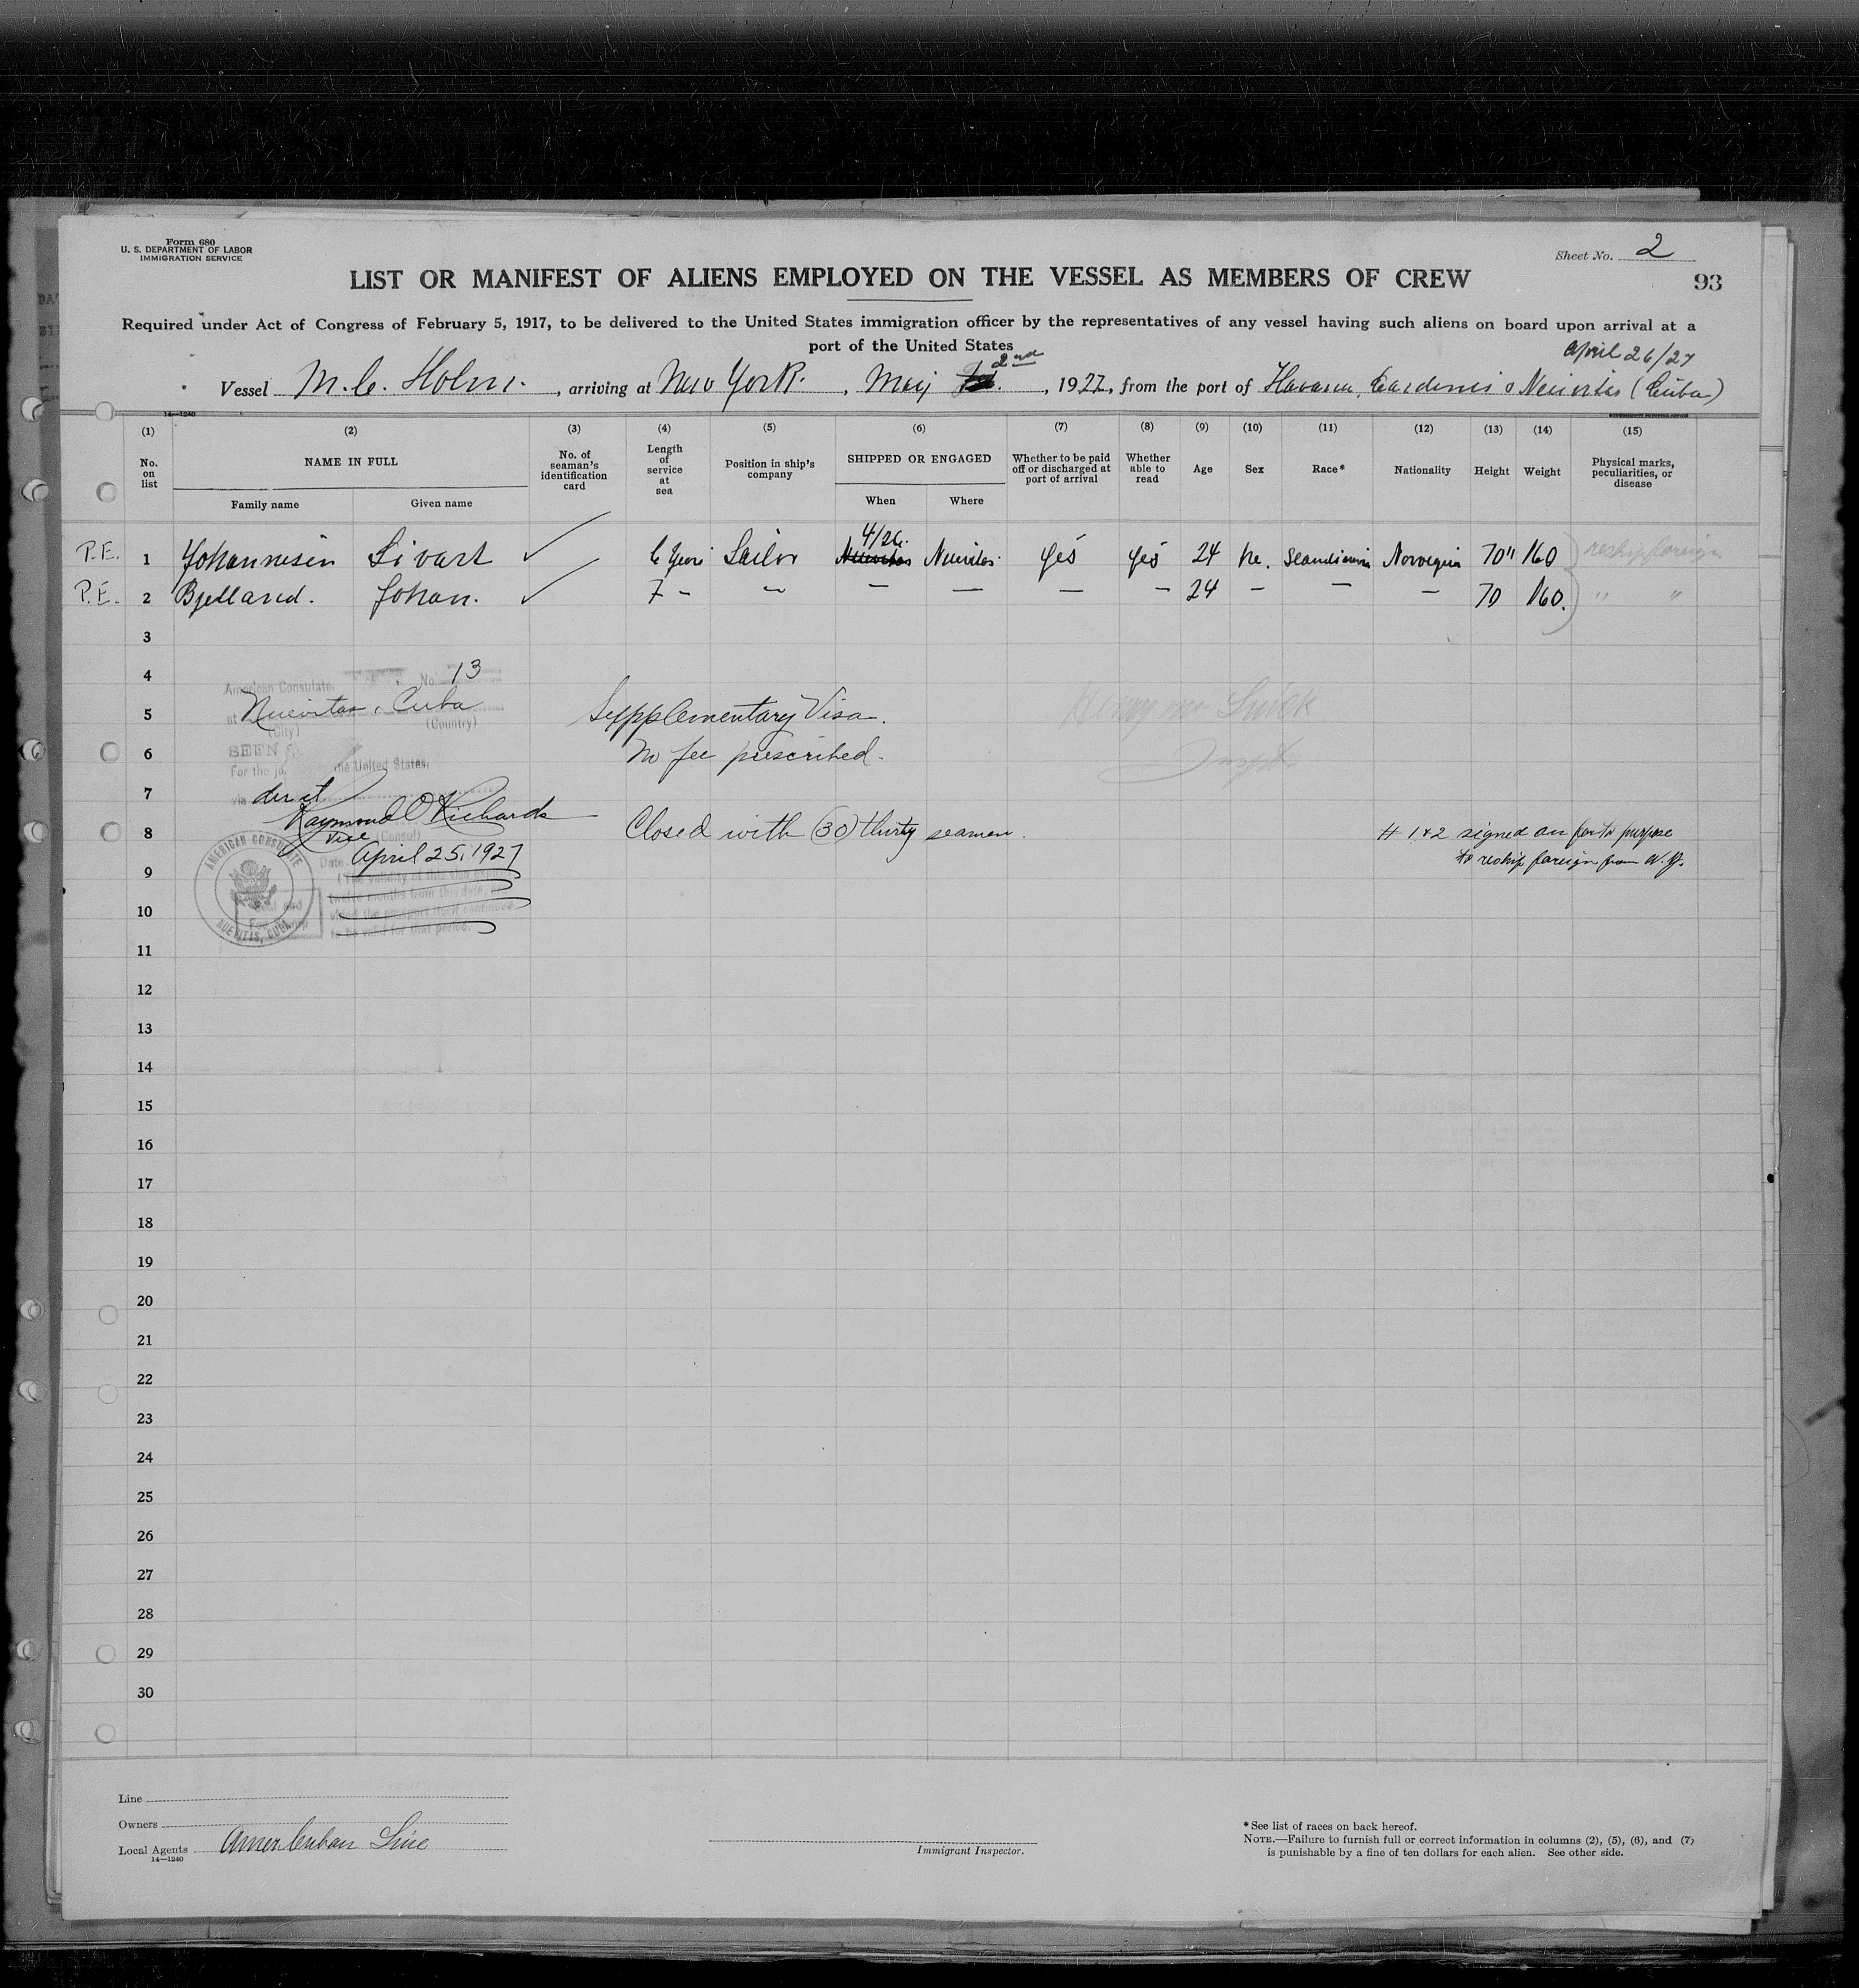 Form 680
U. S. DEPARTMENT OF LABOR
IMMIGRATION SERVICE
Sheet No. 2
93
LIST OR MANIFEST OF ALIENS EMPLOYED ON THE VESSEL AS MEMBERS OF CREW
Required under Act of Congress of February 5, 1917, to be delivered to the United States immigration officer by the representatives of any vessel having such aliens on board upon arrival at a
port of the United States
April 26/27
2nd
Vessel M.C. Holm., arriving at New York., May, 1927, from the port of Havana, Cardenis o Neuvitas (Cuba)
14—1240
(1) (2) (3) (4) (5) (6) (7) (8) (9) (10) (11) (12) (13) (14) (15)
No. on list
NAME IN FULL
Family name
Given name
No. of seaman's identification card
Length of service at sea
Position in ship's company
SHIPPED OR ENGAGED
When
Where
Whether to be paid off or discharged at port of arrival
Whether able to read
Age
Sex
Race*
Nationality
Height
Weight
Physical marks, peculiarities, or disease
4/26.
P.E. 1 Johannesen Sivart 6 Years Sailor Neuvitas Neuvitas. yes yes 24 Scandinavia Norwegian 70" 160 reship foreign
P.E. 2 Bjelland. Johan. 7 - - - - - - 24 - - - 70 160. " "
3
4
No. 13
American Consulate
5
at Nuevitas, Cuba
(City) (Country)
Supplementary Visa.
6
SEEN
No fee prescribed.
For the the United States
7
via direct
Raymond O Richards
8
Vice (Consul)
Closed with (30) thirty seamen.
# 1+2 signed on for the purpose
Date April 25, 1927
to reship foreign from N.Y.
9
(The validity of this visa
twelve months from this date,
10
the passport itself continues
to be valid for that period.
AMERICAN CONSULATE
NUEVITAS, CUBA
11
12
13
14
15
16
17
18
19
20
21
22
23
24
25
26
27
28
29
30
Line
Owners
Local Agents Amer Cuban Line
14—1240
Immigrant Inspector.
* See list of races on back hereof.
NOTE.—Failure to furnish full or correct information in columns (2), (5), (6), and (7)
is punishable by a fine of ten dollars for each alien. See other side.